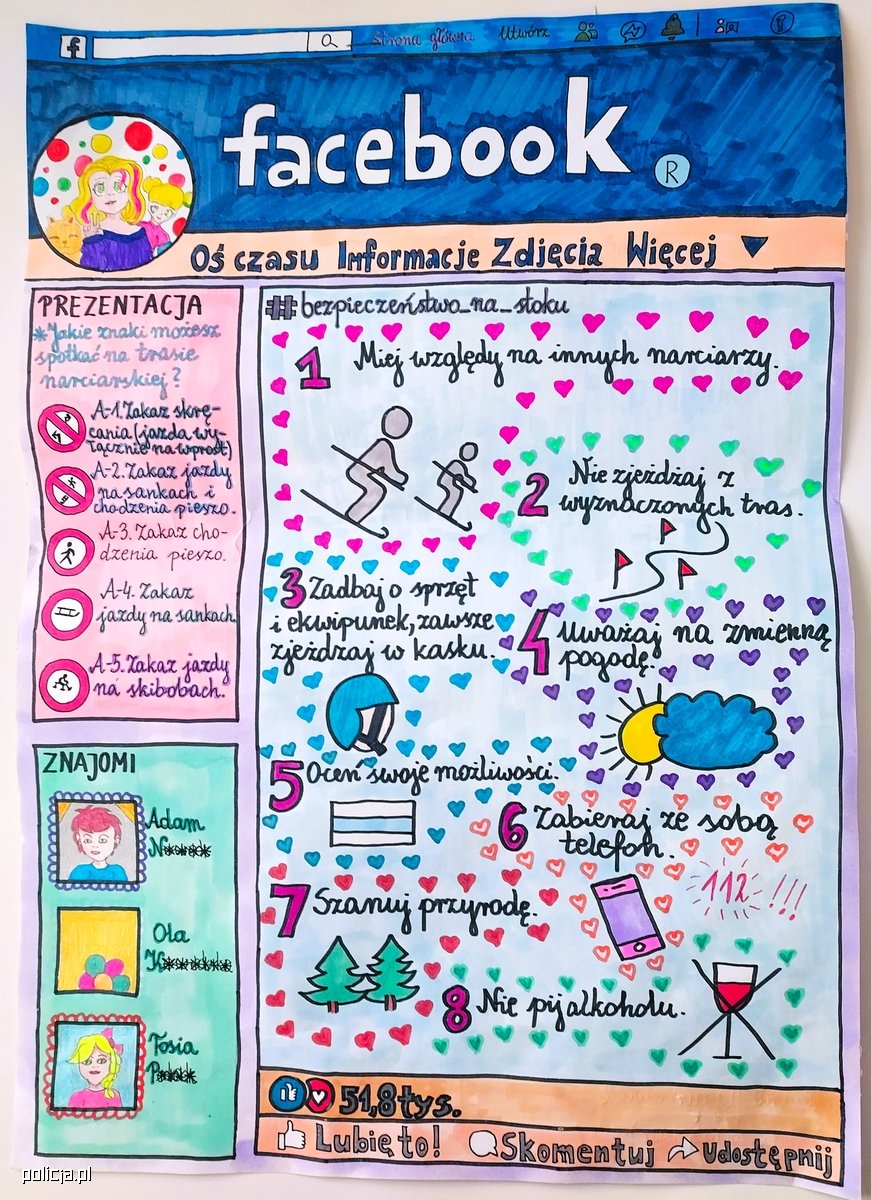 f
Strona główna Utwórz
facebook ®
Oś czasu Informacje Zdjęcia Więcej
PREZENTACJA
*Jakie znaki możesz
spotkać na trasie
narciarskiej?
A-1. Zakaz skrę-
cania (jazda wy-
łącznie na wprost)
A-2. Zakaz jazdy
na sankach i
chodzenia pieszo.
A-3. Zakaz cho-
dzenia pieszo.
A-4. Zakaz
jazdy na sankach
A-5. Zakaz jazdy
na skibobach.
ZNAJOMI
Adam
Ola
Tosia
#bezpieczeństwo_na_stoku
1 Miej względy na innych narciarzy.
2 Nie zjeżdżaj z
wyznaczonych tras.
3 Zadbaj o sprzęt
i ekwipunek, zawsze
zjeżdżaj w kasku.
4 Uważaj na zmienną
pogodę.
5 Oceń swoje możliwości.
6 Zabieraj ze sobą
telefon.
112 !!!
7 Szanuj przyrodę.
8 Nie pij alkoholu.
51,8 tys.
Lubię to! Skomentuj Udostępnij
policja.pl